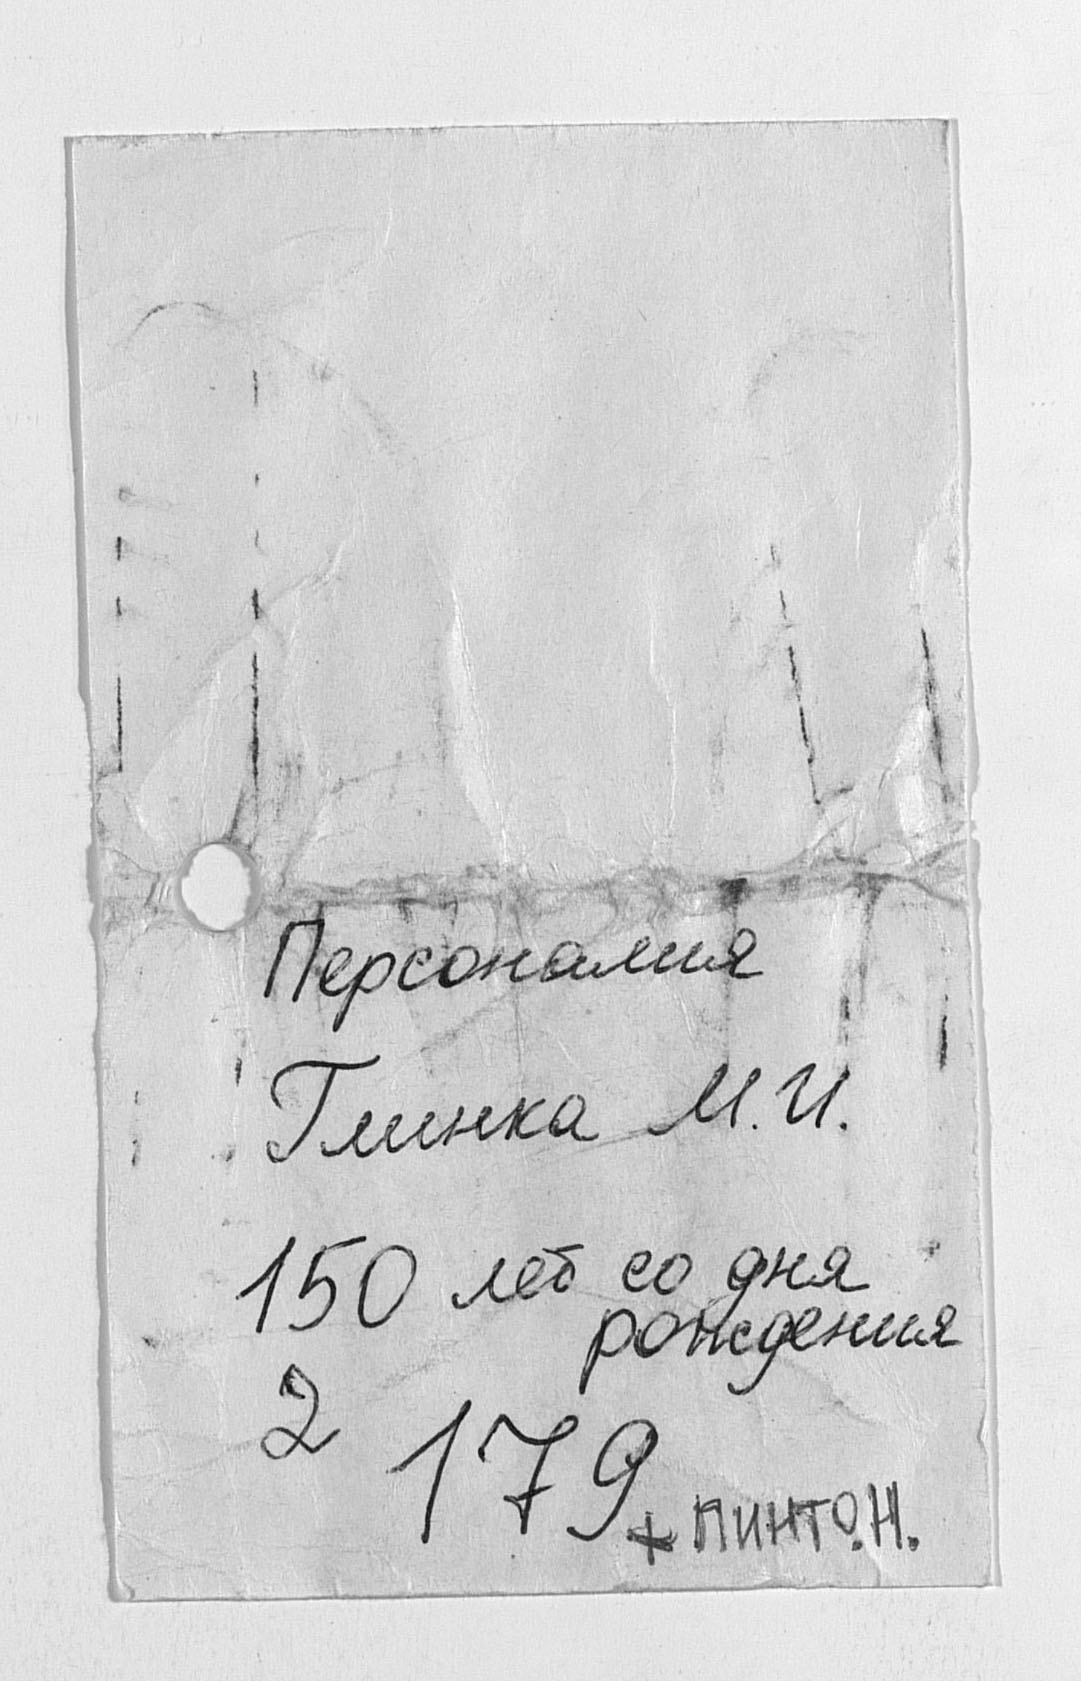 Персоналия
Глинка М.И.
150 лет со дня
рождения
2
179
+ ПИНТО.Н.